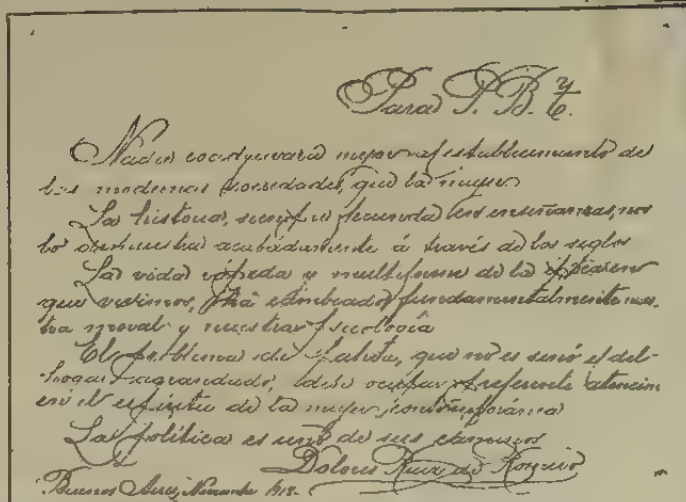 Para P. B. y C.
Nada coadyuvará mejor al establecimiento de
las modernas sociedades, que la mujer
La historia, siempre fecunda en enseñanzas, nos
lo demuestra acabadamente á través de los siglos
La vida rápida y multiforme de la época en
que vivimos, ha cambiado fundamentalmente nues-
tra moral y nuestra psicología
El problema de la patria, que no es sinó el del
hogar agrandado, debe ocupar preferente atención
en el espíritu de la mujer contemporánea
La política es uno de sus caminos
Dolores
Buenos Aires, Noviembre 1912.